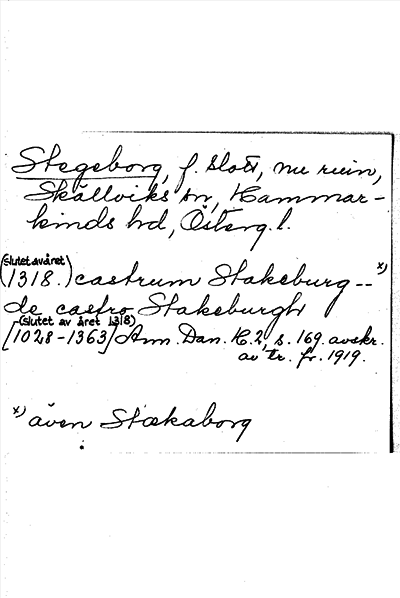 Stegeborg, f. slott, nu ruin,
Skällviks sn, Hammar-
kinds hd, Österg. l.
(slutet av året)
(1318.) castrum Stakeburg -- x)
de castro Stakeburgh
(slutet av året 1318)
[1028-1363] Ann. Dan. H. 2, s. 169. avskr.
av tr. fr. 1919.
x) även Stækaborg